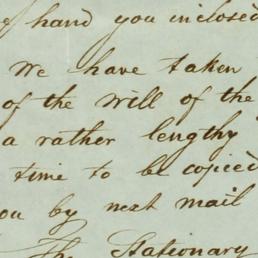 hand you inclosed
We have taken
of the will of the
a rather lengthy
time to be copied
you by next mail
The Stationary